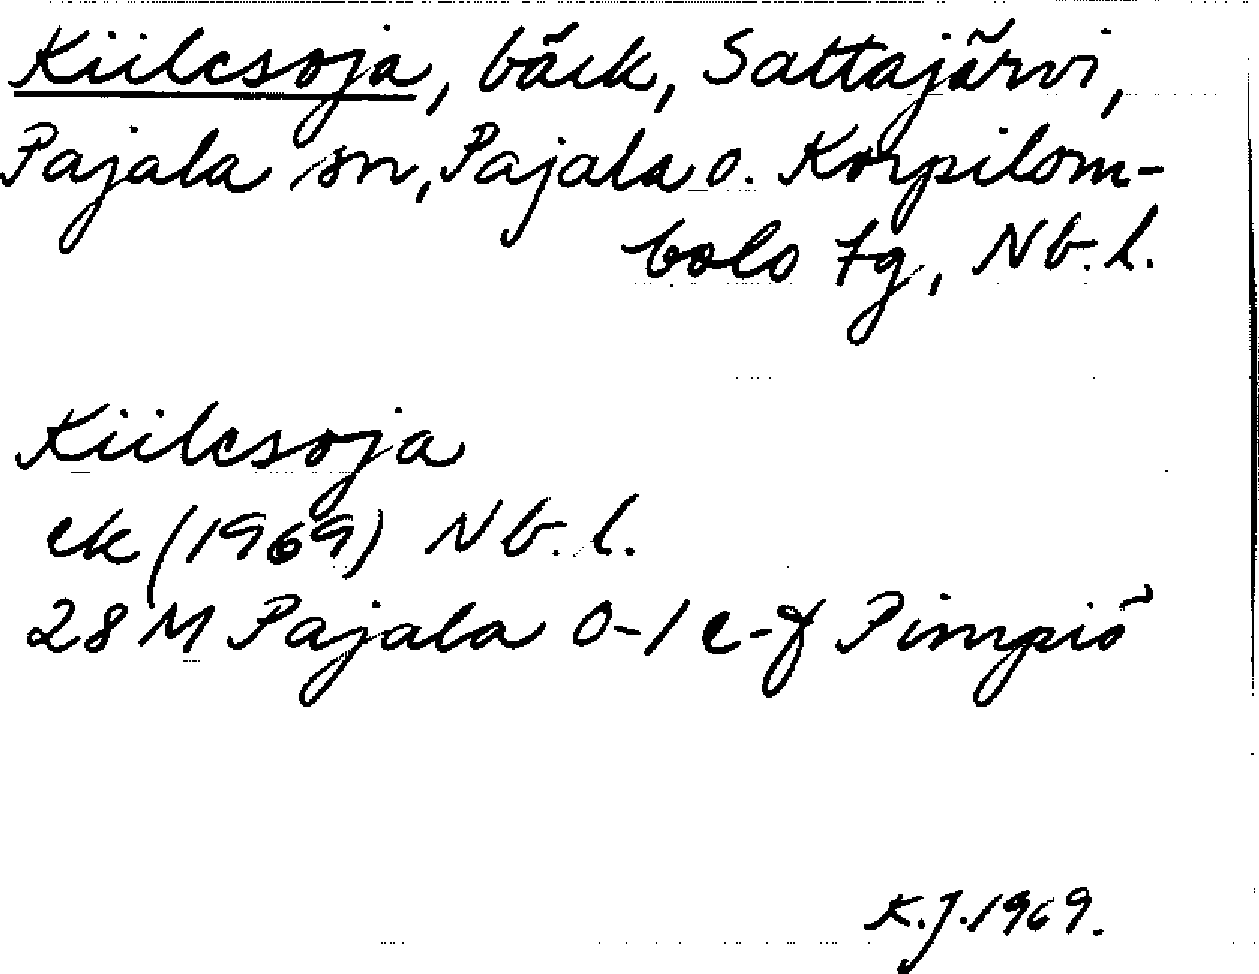 Kiilesoja, bäck, Sattajärvi,
Pajala sn, Pajala o. Korpilom-
bolo tg, Nb. l.
Kiilesoja
ek (1969) Nb. l.
28 M Pajala 0-1 e-f Pimpiö
K.J. 1969.